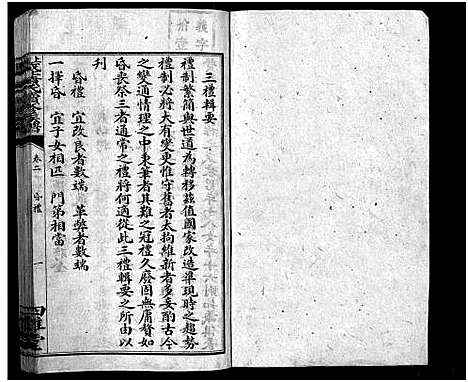 三禮輯要
禮制繁簡與世道為轉移茲值國家改造準現時之趨勢
禮制必將大有變更惟守舊者太拘維新者多妄酌古今
之變通情理之中秉筆者其難之冠禮久廢固無庸贅如
昏喪祭三者通常之禮將何適從此三禮輯要之所由以
刊
昏禮 宜改良者數端 革弊者數端
一擇昏 宜子女相匹 門第相當
卷二
一